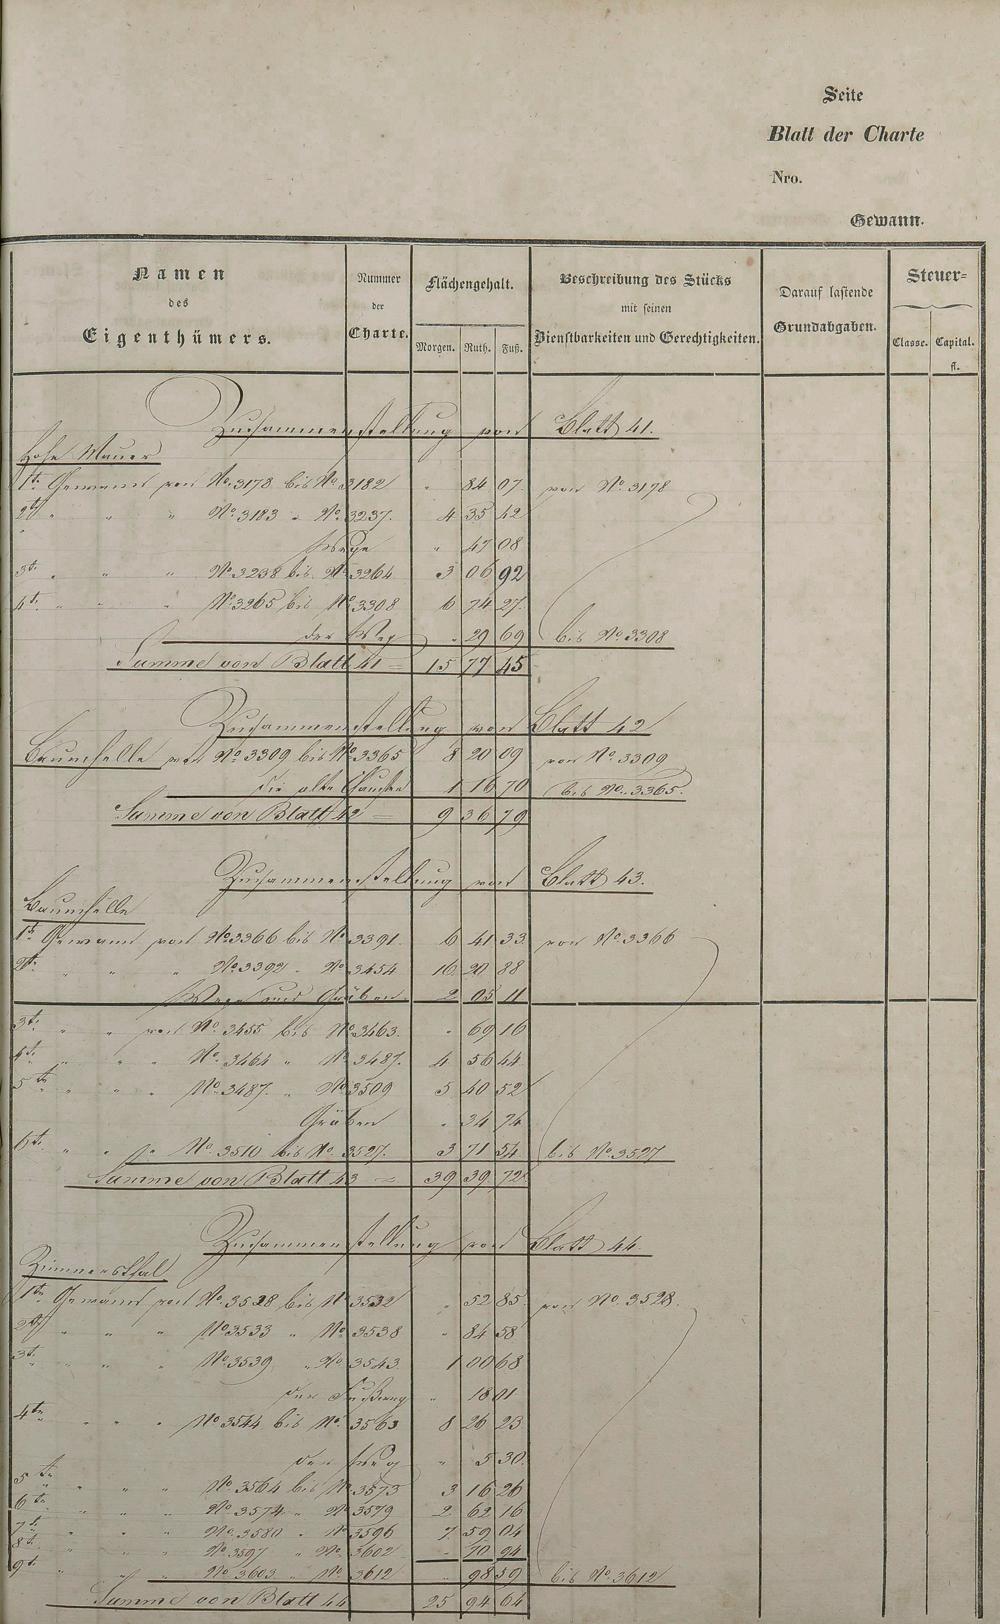 Seite
Blatt der Charte
Nro.
Gewann.
Namen
des
Eigenthümers.
Nummer
der
Charte.
Flächengehalt.
Morgen. Ruth. Fuß.
Beschreibung des Stücks
mit seinen
Dienstbarkeiten und Gerechtigkeiten.
Darauf lastende
Grundabgaben.
Steuer-
Classe. Capital.
fl.
Zusammenstellung von Blatt 41.
Hohe Mauer
1te Gewann von No. 3178 bis No. 3182 " 84 07 von No. 3178
2te " " " No. 3183 " No. 3237. 4 35 42
Wege " 47 08
3te " " " No. 3238 bis No. 3264 3 06 92
4te " " " No. 3265 bis No. 3308 6 74 27.
der Weg " 29 69 bis No. 3308
Summe von Blatt 41 = 15 77 45
Zusammenstellung von Blatt 42
Baumhelle von No. 3309 bis No. 3365 8 20 09 von No. 3309
die alte 1 16 70 bis No. 3365.
Summe von Blatt 42 = 9 36 79
Zusammenstellung von Blatt 43.
Baumhelle
1te Gewann von No. 3366 bis No. 3391. 6 41 33 von No. 3366
2te " " " No. 3392 " No. 3454 16 20 88
Wege und Gräben 2 05 11
3te " " von No. 3455 bis No. 3463. " 69 16
4te " " " No. 3464 " No. 3487. 4 56 44
5te " " " No. 3487. " No. 3509 5 40 52
Gräben " 34 74
6te " " " No. 3510 bis No. 3527. 3 71 54 bis No. 3527
Summe von Blatt 43 = 39 39 72
Zusammenstellung von Blatt 44
Zimmersthal
1te Gewann von No. 3528 bis No. 3532 " 52 85. von No. 3528.
2te " " " No. 3533 " No. 3538 " 84 58
3te " " " No. 3539 " No. 3543 1 00 68
der Fußweg " 18 01
4te " " " No. 3544 bis No. 3563 8 26 23
der Weg " 5 30
5te " " " No. 3564 bis No. 3573 3 16 26
6te " " " No. 3574 " No. 3579 2 62 16
7te " " " No. 3580 " No. 3596 7 59 04
8te " " " No. 3597 " No. 3602 " 70 94
9te " " " No. 3603 " No. 3612 " 98 59 bis No. 3612
Summe von Blatt 44 25 94 64